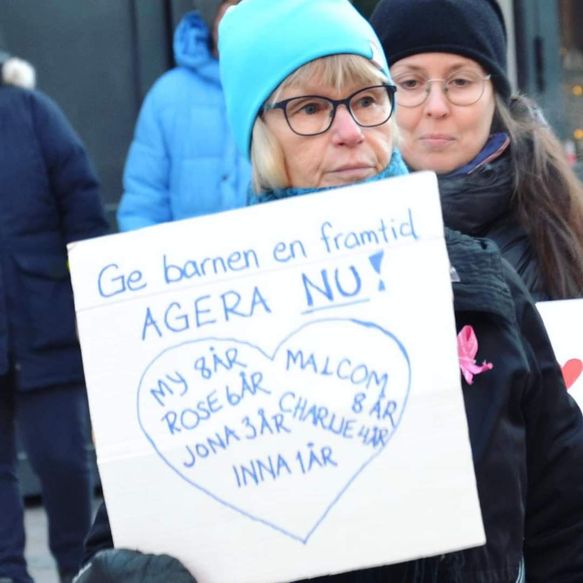 Ge barnen en framtid
AGERA NU!
MY 8ÅR
ROSE 6ÅR
JONA 3ÅR
MALCOM
8 ÅR
CHARLIE 4ÅR
INNA 1ÅR